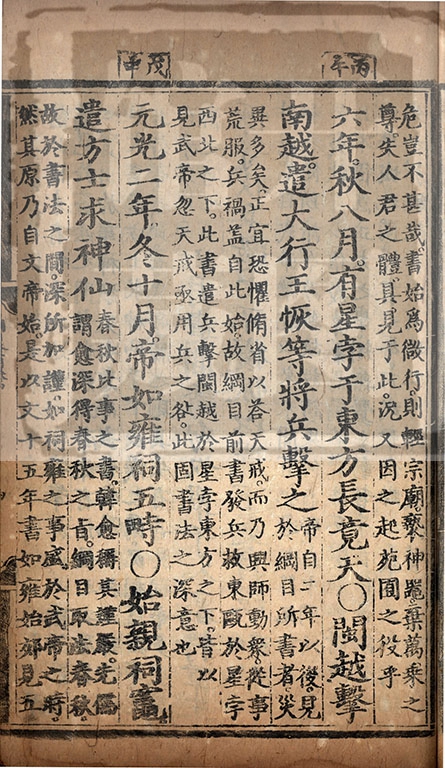 丙午
危豈不甚哉。書始爲微行。則輕宗廟。褻神器。棄萬乘之
尊。失人君之體。具見于此。況又因之起苑囿之役乎
六年。秋八月。有星孛于東方長竟天〇閩越擊
南越。遣大行王恢等將兵擊之
帝自二年以後。見
於綱目所書者。災
異多矣。正宜恐懼脩省以荅天戒。而乃興師動衆。從事
荒服。兵禍盖自此始。故綱目前書發兵救東甌於星孛
西北之下。此書遣兵擊閩越於星孛東方之下。皆以
見武帝忽天戒亟用兵之此固書法之深意也
戊申
元光二年。冬十月。帝如雍祠五畤〇始親祠竈
遣方士求神仙
春秋此事之書。韓愈稱其謹嚴。先儒
謂愈深得春秋之旨。綱目取法春秋。
故於書法之間。深所加謹。如祠雍之事。盛於武帝之時。
然其原乃自文帝始。是以文十五年書如雍始郊見五